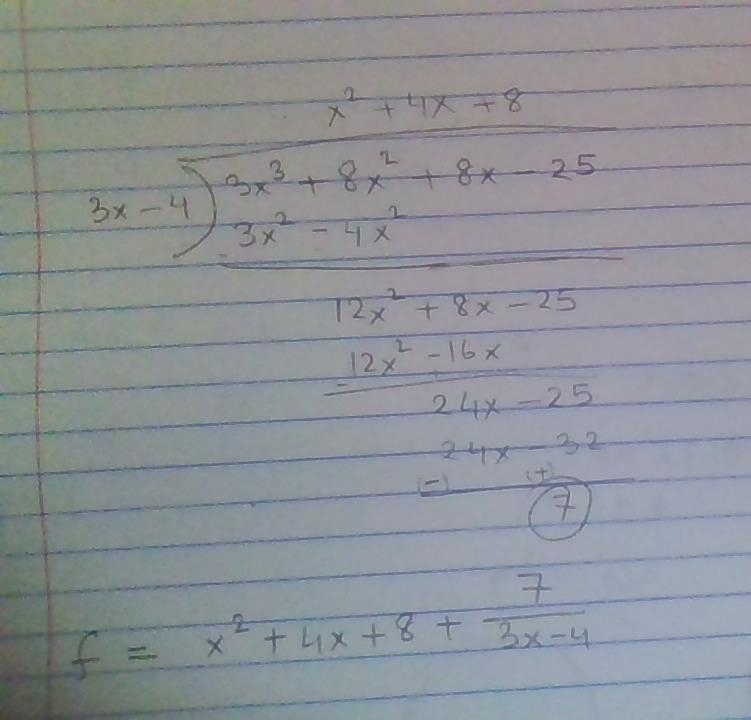 x² + 4x + 8
3x - 4 ) 3x³ + 8x² + 8x - 25
3x² - 4x²
12x² + 8x - 25
12x² - 16x
-
24x - 25
24x - 32
(-) (+)
7
f = x² + 4x + 8 + 7/(3x-4)